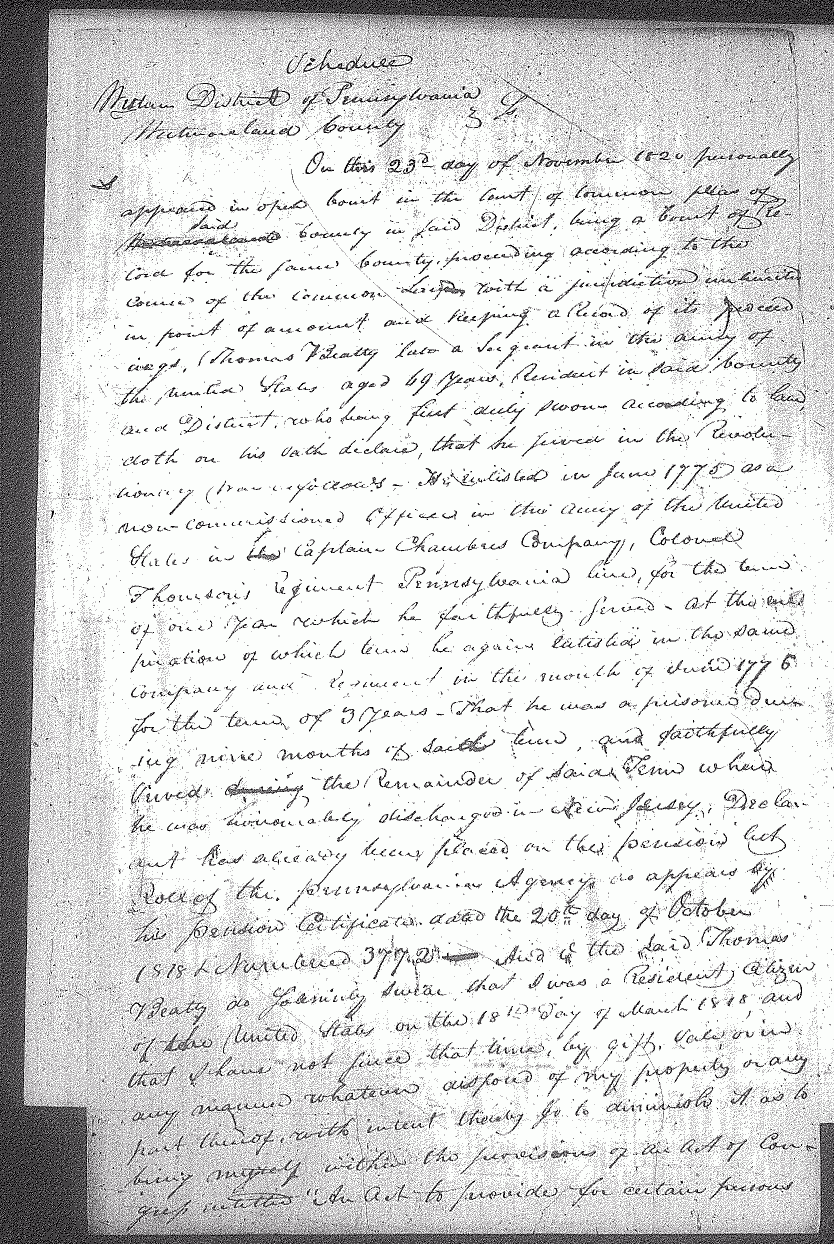 Schedule
Western District of Pennsylvania
Westmoreland County } Ss.
On this 23d day of November 1820 personally
appeared in open Court in the Court of common pleas of
said
County in said District, being a Court of Re-
cord for the same County, proceeding according to the
course of the common Law with a jurisdiction unlimited
in point of amount and keeping a Record of its proceed
ings, Thomas Beatty late a Sergeant in the army of
the united States aged 69 Years, Resident in said County
and District, who being first duly sworn according to law,
doth on his oath declare, that he served in the Revolu-
tionary War as follows - He enlisted in June 1775 as a
non-commissioned Officer in the army of the United
States in Captain Chambers Company, Colonel
Thomson's Regiment Pennsylvania line, for the term
of one Year which he faithfully served - at the ex
piration of which term he again enlisted in the same
Company and Regiment in the month of June 1776
for the term of 3 Years - That he was a prisoner dur-
ing nine months of said term, and faithfully
served the Remainder of said Term when
he was honourably discharged in New Jersey, Declar-
ant has already been placed on the pension list
Roll of the Pennsylvania Agency as appears by
his pension Certificate dated the 20th day of October
1818 & Numbered 3772 - And I the said Thomas
Beatty do solemnly swear that I was a Resident Citizen
of the United States on the 18th day of March 1818, and
that I have not since that time, by gift, sale, or in
any manner whatever disposed of my property or any
part thereof, with intent thereby so to diminish it as to
bring myself within the provisions of an act of Con-
gress entitled "An Act to provide for certain persons